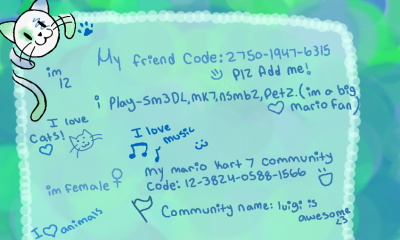 My friend Code: 2750-1947-6315
im 12
Plz Add me!
i Play-Sm3DL,MK7,nsmb2,Petz.(im a big mario fan)
I love cats!
I love music
my mario kart 7 community code: 12-3824-0588-1566
im female
I animals
Community name: luigi is awesome <3